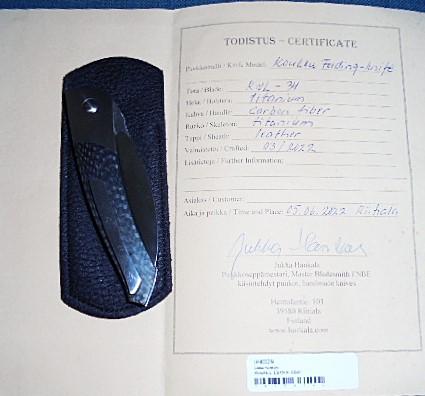 TODISTUS – CERTIFICATE
Puukkomalli / Knife Model: Koukku Folding-knife
Terä / Blade: RWL - 34
Helat / Bolsters: titanium
Kahva / Handle: carbon fiber
Runko / Skeleton: titanium
Tuppi / Sheath: leather
Valmistettu / Crafted: 03/2022
Lisätietoja / Further Information:
Asiakas / Customer:
Aika ja paikka / Time and Place: 05.06.2022 Riitiala
Jukka Hankala
Jukka Hankala
Puukkoseppämestari, Master Bladesmith FNBE
käsintehdyt puukot, handmade knives
39580 Riitiala
Finland
www.hankala.com